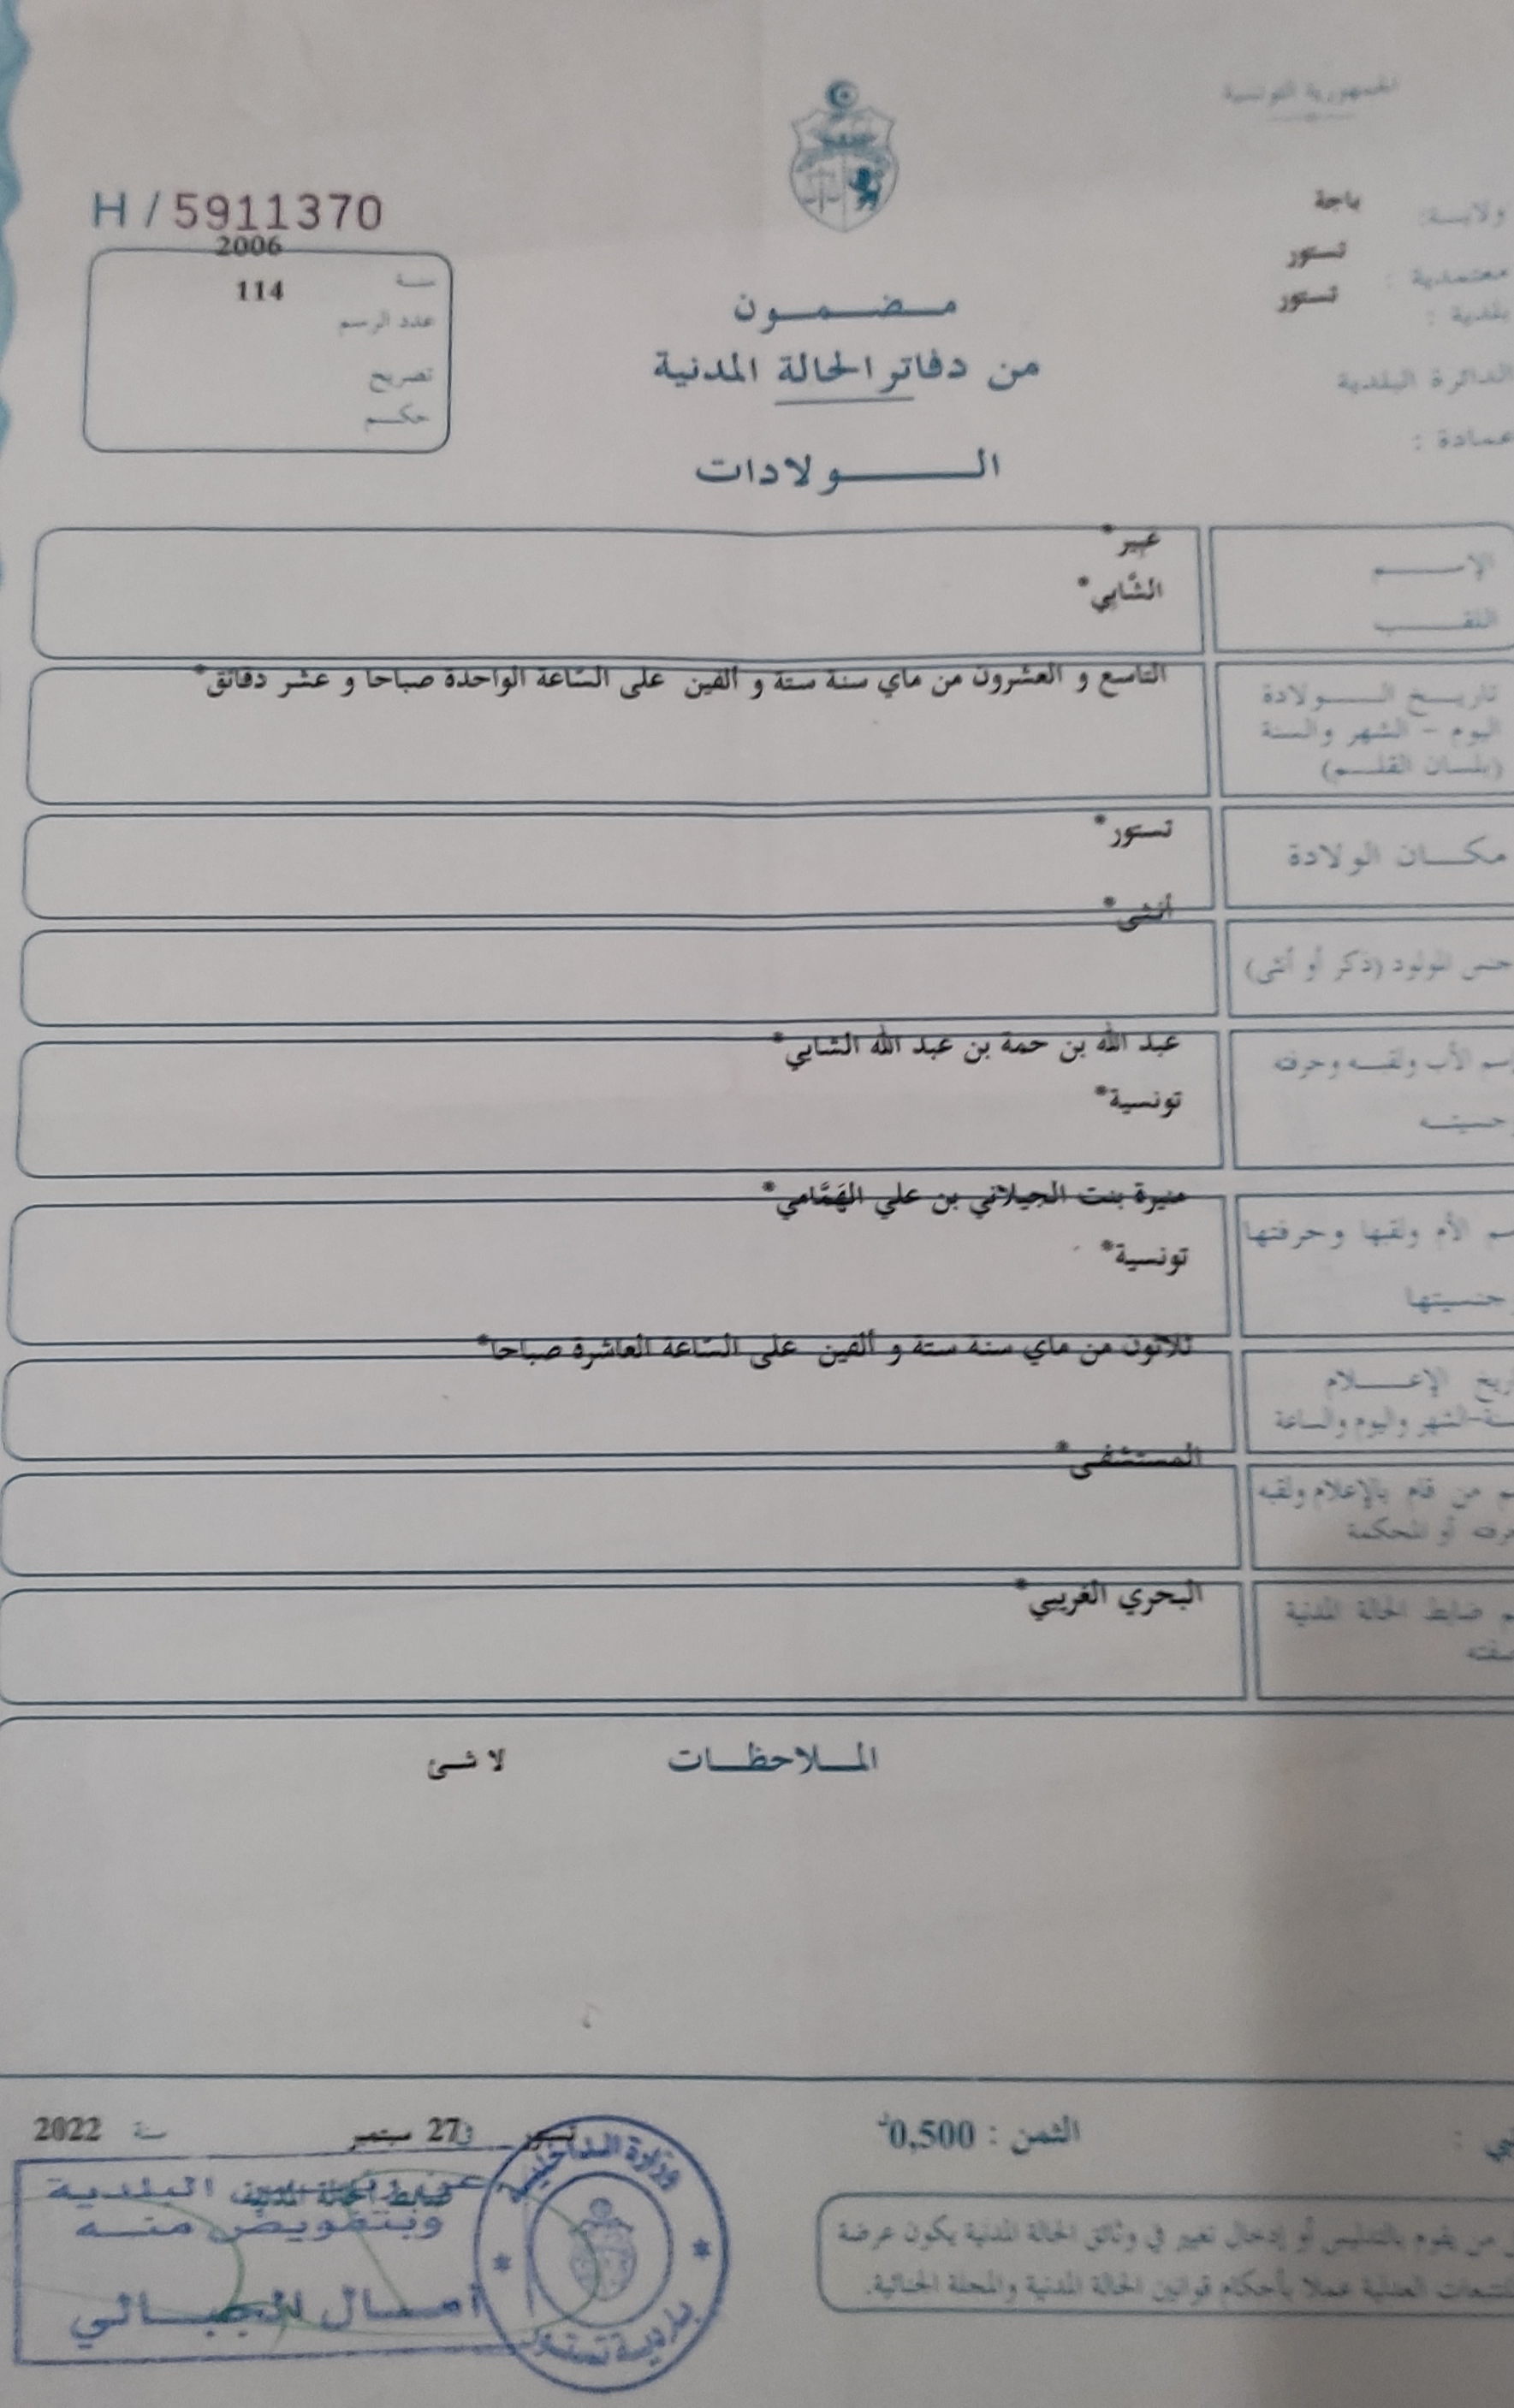 الجمهورية التونسية
ولايــة: باجة
معتمدية : تستور
بلدية : تستور
الدائرة البلدية
عمادة :
H / 5911370
سنة 2006
عدد الرسم 114
تصريح
حكم
مـضـمـون
من دفاتر الحالة المدنية
الـولادات
الإسم عبير*
اللقب الشَّابي*
تاريخ الولادة
اليوم - الشهر والسنة
(بلسان القلم)
التاسع و العشرون من ماي سنة ستة و ألفين على السّاعة الواحدة صباحا و عشر دقائق*
مكان الولادة تستور*
جنس المولود (ذكر أو أنثى) أنثى*
إسم الأب ولقبه وحرفته عبد الله بن حمة بن عبد الله الشابي*
وجنسيته تونسية*
إسم الأم ولقبها وحرفتها منيرة بنت الجيلاني بن علي الهَمَّامي*
وجنسيتها تونسية*
تاريخ الإعلام ثلاثون من ماي سنة ستة و ألفين على السّاعة العاشرة صباحا*
السنة-الشهر واليوم والساعة
من قام بالإعلام ولقبه المستشفى*
أو المحكمة
ضابط الحالة المدنية البحري الغريبي*
الملاحظات لا شئ
الثمن : 0,500د
تستور في 27 سبتمبر سنة 2022
ضابط الحالة المدنية
عن رئيس البلدية
وبتفويض منه
آمال الجبالي
وزارة الداخلية
بلدية تستور
من يقوم بالتدليس أو إدخال تغيير في وثائق الحالة المدنية يكون عرضة
للتتبعات العدلية عملا بأحكام قوانين الحالة المدنية والمجلة الجنائية.